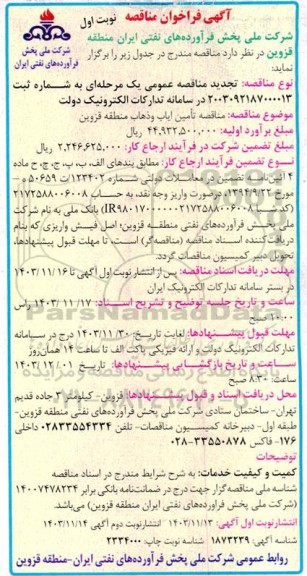 آگهی فراخوان مناقصه
نوبت اول
شرکت ملی پخش فرآورده‌های نفتی ایران منطقه
قزوین در نظر دارد مناقصه مندرج در جدول زیر را برگزار
نماید:
شرکت ملی پخش
فرآورده‌های نفتی ایران
نوع مناقصه: تجدید مناقصه عمومی یک مرحله‌ای به شماره ثبت
۲۰۰۳۰۹۲۱۸۷۰۰۰۰۱۳ در سامانه تدارکات الکترونیک دولت
موضوع مناقصه: مناقصه تأمین ایاب وذهاب منطقه قزوین
مبلغ برآورد اولیه: ۴۴,۹۳۲,۵۰۰,۰۰۰ ریال
مبلغ تضمین شرکت در فرآیند ارجاع کار: ۲,۲۴۶,۶۲۵,۰۰۰ ریال
نوع تضمین فرآیند ارجاع کار: مطابق بندهای الف، ب، پ، ج، چ، ح ماده
۴ آئین نامه تضمین در معاملات دولتی شماره ۱۲۳۴۰۲/ت ۵۰۶۵۹ ه
مورخ ۱۳۹۴/۹/۲۲، درصورت واریز وجه نقد به حساب ۲۱۷۲۵۸۸۰۰۶۰۰۸
بانک ملی به نام شرکت
ملی پخش فرآورده‌های نفتی منطقه قزوین؛ اصل فیش واریزی که بنام
دریافت‌کننده اسناد مناقصه (مناقصه‌گر) است، تا مهلت قبول پیشنهادها،
تحویل دبیر کمیسیون مناقصات گردد.
مهلت دریافت اسناد مناقصه: پس از انتشار نوبت اول آگهی تا ۱۴۰۳/۱۱/۱۶
در بستر سامانه تدارکات الکترونیک ایران
ساعت و تاریخ جلسه توضیح و تشریح اسناد: ۱۴۰۳/۱۱/۱۷ راس
۱۰:۰۰ صبح
مهلت قبول پیشنهادها: لغایت تاریخ ۱۴۰۳/۱۱/۳۰ درج در سامانه
تدارکات الکترونیک دولت و ارائه فیزیکی پاکت الف تا ساعت ۱۴ همان‌روز
ساعت و تاریخ بازگشایی پیشنهادها: تاریخ ۱۴۰۳/۱۲/۰۱
ساعت: ۸:۳۰ صبح
محل دریافت اسناد و قبول پیشنهادها: قزوین- کیلومتر ۳ جاده قدیم
تهران- ساختمان ستادی شرکت ملی پخش فرآورده‌های نفتی منطقه قزوین-
طبقه اول- دبیرخانه کمیسیون مناقصات- تلفن ۰۲۸۳۳۵۵۴۳۳۴ داخلی
۱۷۶- فاکس ۰۲۸-۳۳۵۵۰۸۷۸
توضیحات
کمیت و کیفیت خدمات: به شرح شرایط مندرج در اسناد مناقصه
شناسه ملی مناقصه گزار جهت درج در ضمانت‌نامه بانکی برابر ۱۴۰۰۷۴۷۸۲۳۴
(شرکت ملی پخش فرآورده‌های نفتی ایران- منطقه قزوین) می‌باشد.
انتشار نوبت اول آگهی: ۱۴۰۳/۱۱/۱۳ انتشار نوبت دوم آگهی ۱۴۰۳/۱۱/۱۴
شناسه آگهی: ۱۸۷۳۲۳۹ شناسه نوبت چاپ: ۲۳۳۴۰۰۰
روابط عمومی شرکت ملی پخش فرآورده‌های نفتی ایران-منطقه قزوین